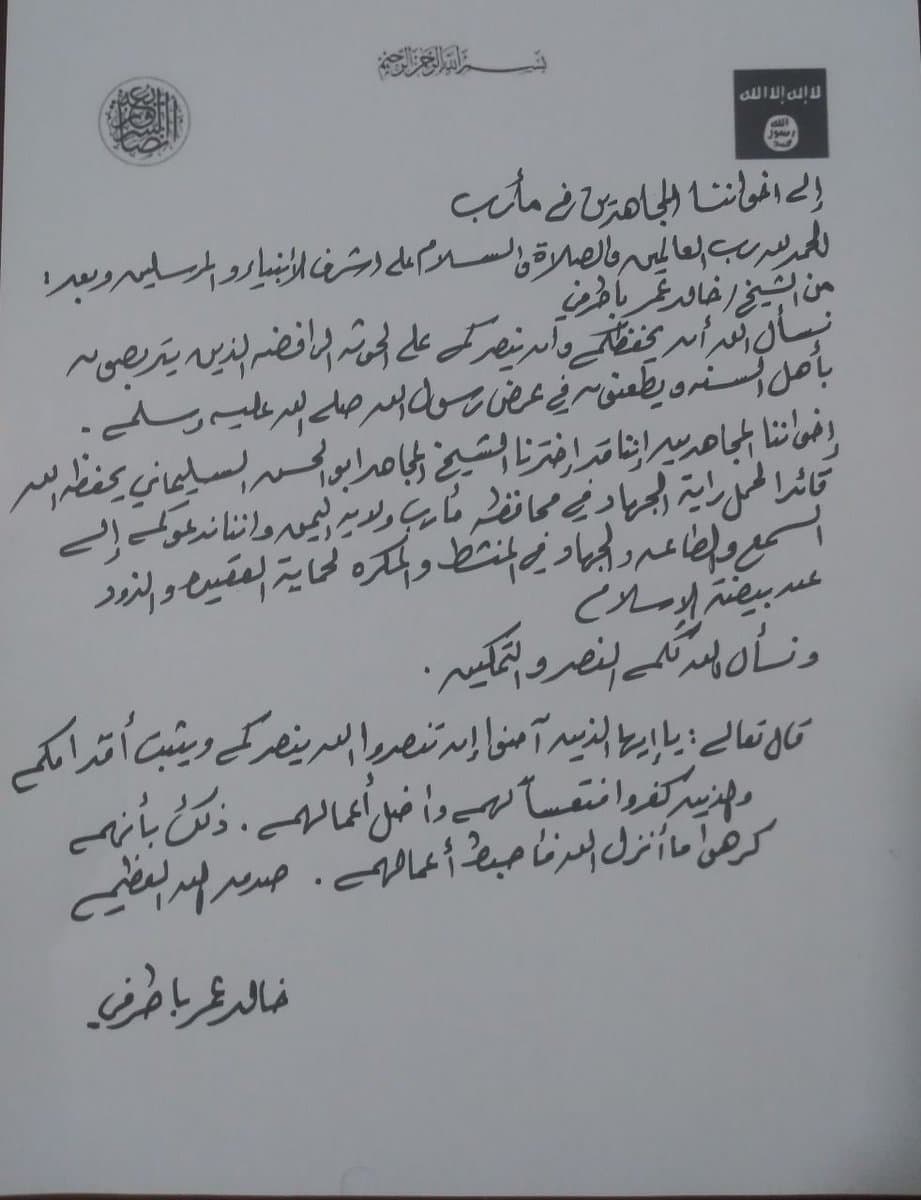 بسم الله الرحمن الرحيم
لا إله إلا الله
الله
رسول
محمد
أنصار الشريعة
إلى اخواننا المجاهدين في مأرب
الحمد لله رب العالمين والصلاة والسلام على اشرف الأنبياء والمرسلين وبعد:
من الشيخ / خالد عمر باطرفي
نسأل الله أن يحفظكم وأن ينصركم على الحوثه الرافضه الذين يتربصون
بأهل السنه ويطعنون في عرض رسول الله صلى الله عليه وسلم .
إخواننا المجاهدين إننا قد إخترنا الشيخ المجاهد ابو الحسن السليماني يحفظه الله
قائدا لحمل راية الجهاد في محافظه مأرب ولايه اليمن واننا ندعوكم إلى
السمع والطاعه والجهاد في المنشط والمكره لحماية العقيده والذود
عن بيضة الإسلام
ونسأل الله لكم النصر والتمكين .
قال تعالى : يا إيها الذين آمنوا إن تنصروا الله ينصركم ويثبت أقدامكم
والذين كفروا فتعساً لهم واضل أعمالهم . ذلك بأنهم
كرهوا ما أنزل الله فاحبط أعمالهم . صدق الله العظيم
خالد عمر باطرفي